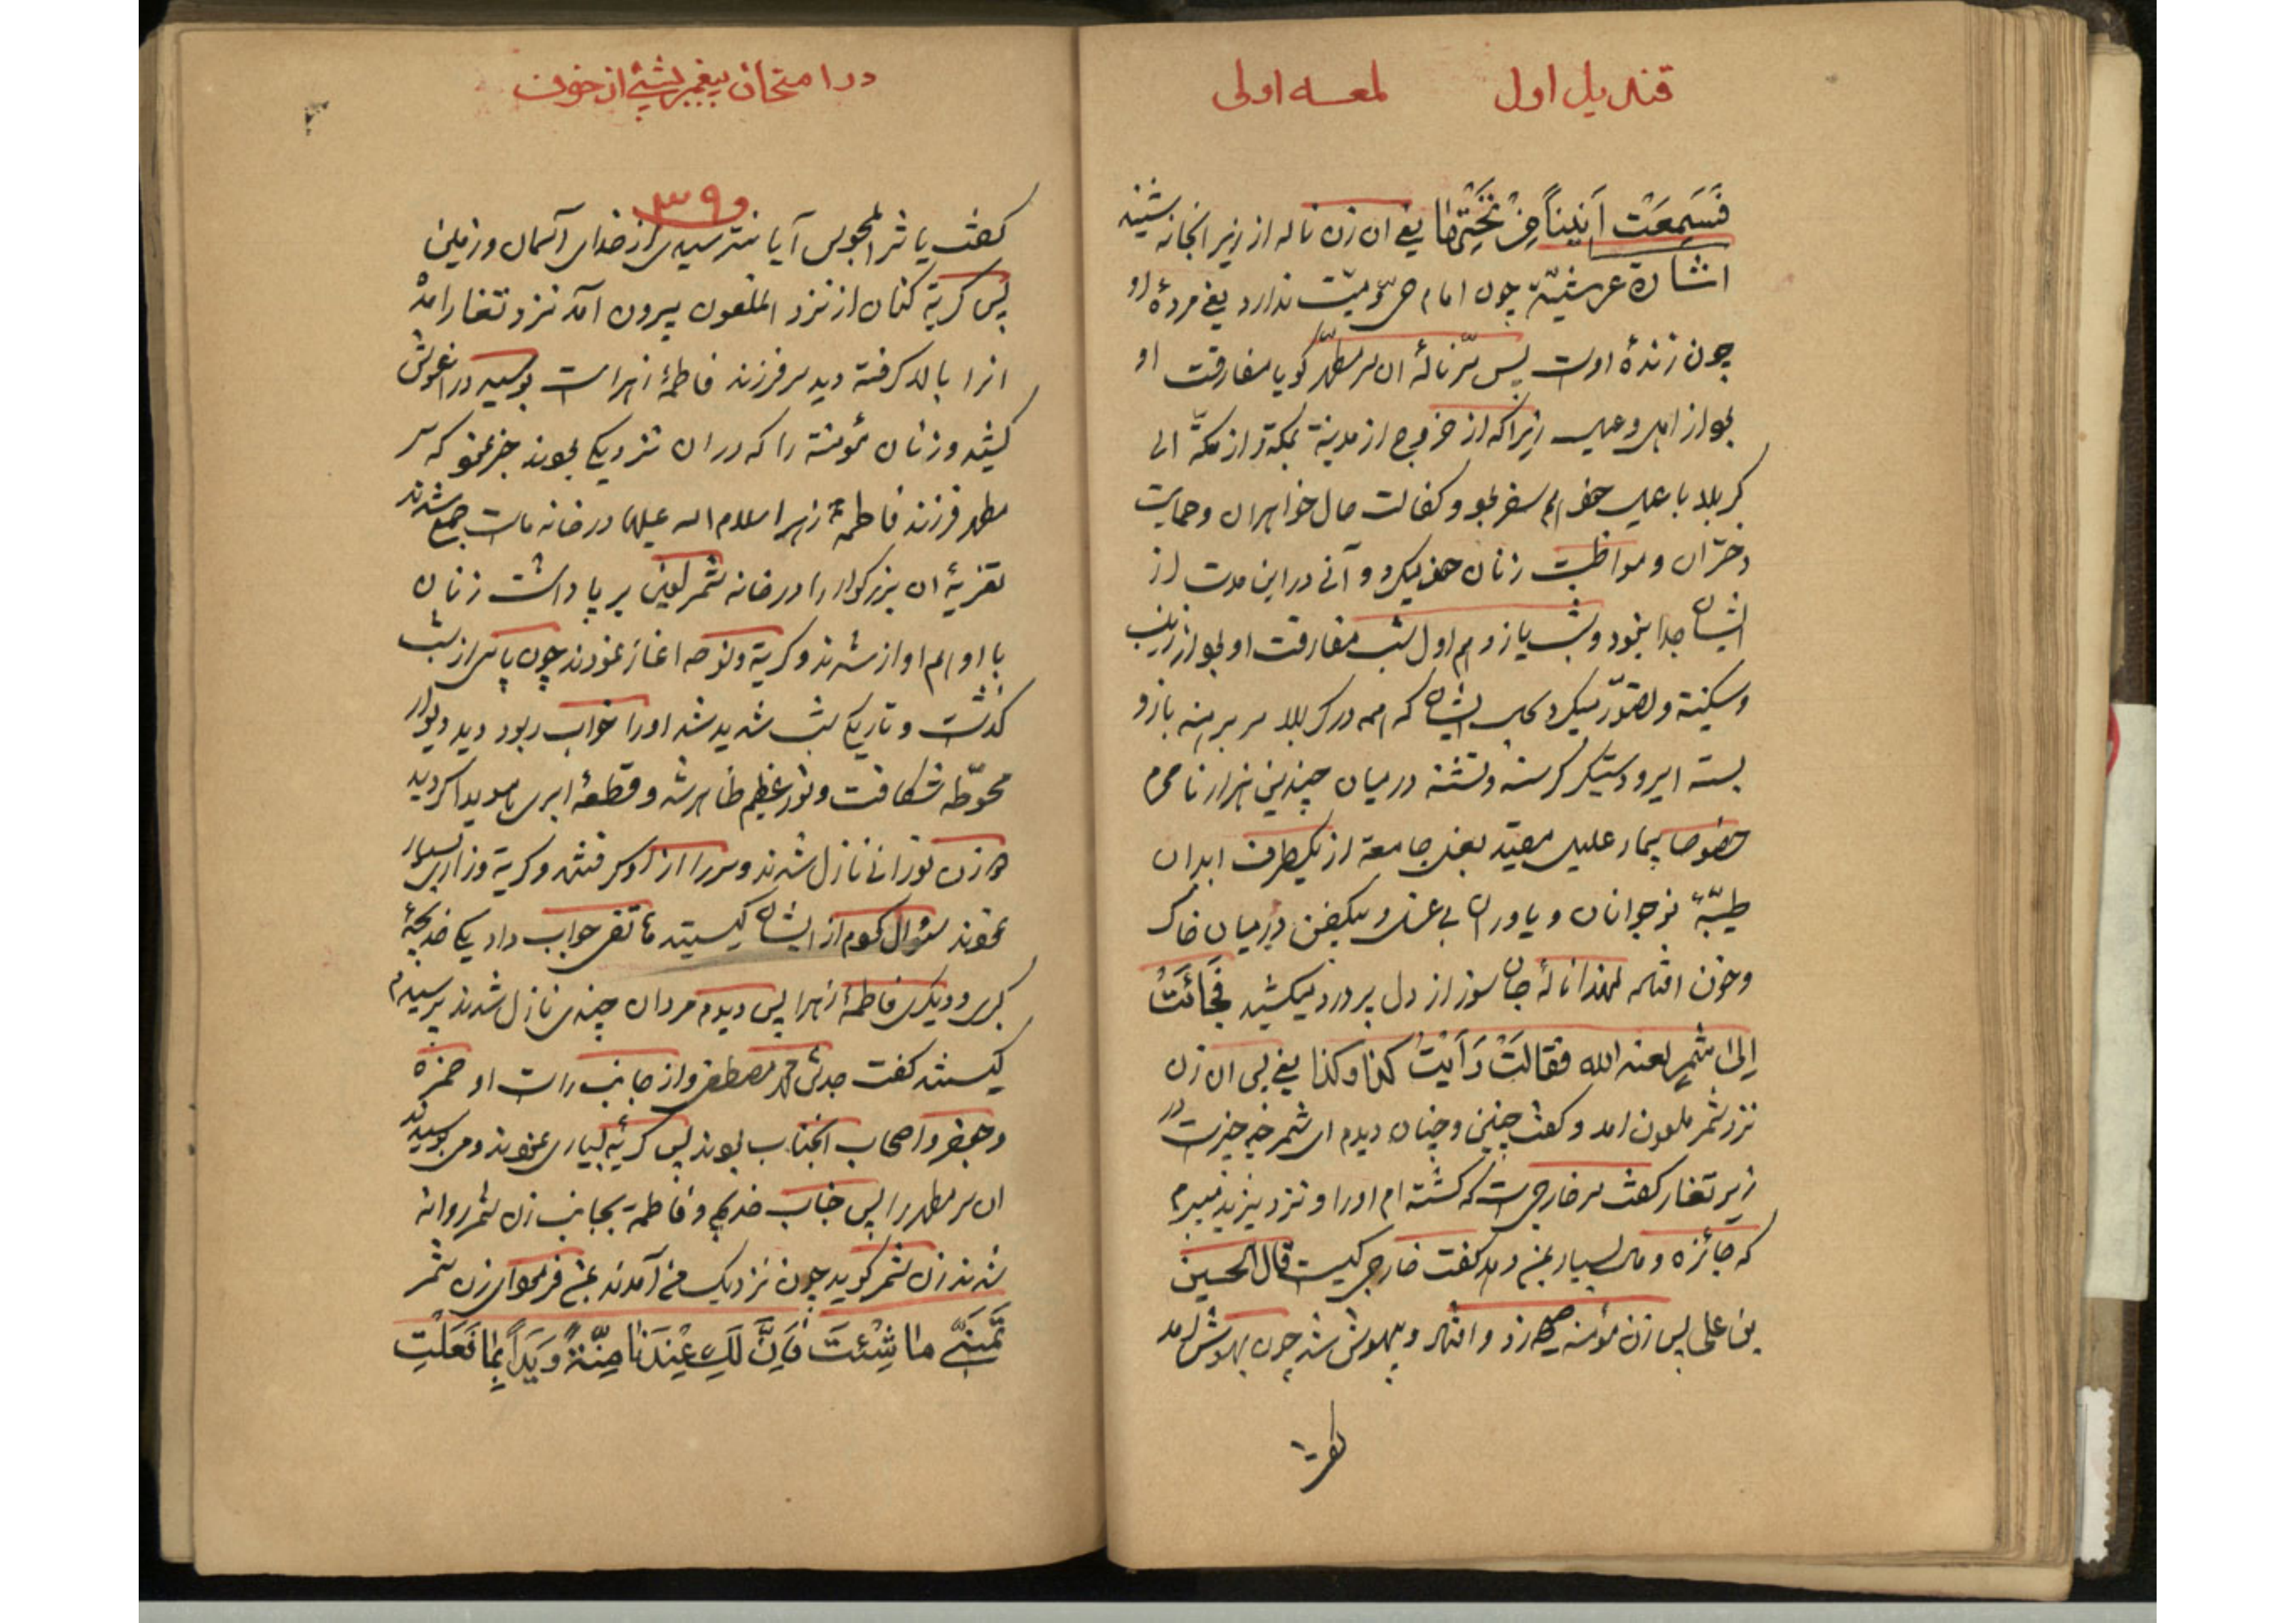 قندیل اول لمعه اولی
فَسَمِعَتْ اَنیناً مِنْ تَحْتِها یعنی ان زن ناله از زیر انجانه شنید
اشارة عرشیّة چون امام حیّ و میّت ندارد یعنی مردهٔ او
چون زندهٔ اوست پس سّر نالهٔ ان سر مطهّر کویا مفارقت او
بود از اهل و عیال زیرا که از خروج از مدینة بمکة و از مکّة الی
کربلا با عیال خود هم سفر بود و کفالت حال خواهران و حمایت
دختران و مواظبت زنان خود میکرد و آنی در این مدت از
ایشان جدا نبود و شب یازدهم اول شب مفارقت او بود از زینب
و سکینة و تصوّر میکرد بحال ایشان که همه در کربلا سر برهنه بازو
بسته اسیر و دستیکر کرسنه و تشنه در میان چندین هزار نامحرم
خصوصا بیمار علیل مقیّد بغل جامعة از یکطرف ابدان
طیّبهٔ نوجوانان و یاوران بی غسل و بیکفن در میان خاک
و خون افتاده لهذا نالهٔ جان سوز از دل پر درد میکشید فَجائَتْ
اِلیٰ شمر لعنه الله فقالَتْ رَاَیْتُ کذا و کذا یعنی پس ان زن
نزد شمر ملعون امد و کفت چنین و چنان دیدم ای شمر چه چیز است در
زیر تغار کفت سر خارجی است که کشته ام او را و نزد یزید میبرم
که جائزه و مال بسیار بمن دهد کفت خارجی کیست قال الحسین
بن علی پس زن مؤمنه صیحه زد و افتاد و بیهوش شد چون بهوش امد
کفت
در امتحان پیغمبر بشیئ از خوف
۳۹
کفت یا شر المجوس آیا نترسیدی از خدای آسمان و زمین
پس کریة کنان از نزد الملعون بیرون آمد نزد تغار امد
انرا بالا کرفته دید سر فرزند فاطمهٔ زهراست بوسید در اغوش
کشید و زنان مؤمنة را که در ان نزدیکی بودند خبر نمود که سر
مطهر فرزند فاطمهٔ زهرا سلام الله علیها در خانه ماست جمع شدند
تعزیهٔ ان بزرکوار را در خانه شمر لعین بر پا داشت زنان
با او هم اواز شدند و کریة و نوحه اغاز نمودند چون پاسی از شب
کذشت و تاریکی شب شدید شد او را خواب ربود دید دیوار
محوّطه شکافت و نور عظیم ظاهر شد و قطعهٔ ابری هویدا کردید
دو زن نورانی نازل شدند و سر را از او کرفتند و کریة و زاری بسیار
نمودند سؤال کردم از ایشان کیستید هاتفی جواب داد یکی خدیجهٔ
کبری و دیکری فاطمهٔ زهرا پس دیدم مردان چندی نازل شدند پرسیدم
کیستند کفت جدش محمد مصطفی و از جانب راست او حمزه
و جعفر و اصحاب انجناب بودند پس کریهٔ بسیاری نمودند و می بوسیدند
ان سر مطهر را پس جناب خدیجه و فاطمة بجانب زن شمر روانه
شدند زن شمر کوید چون نزدیک من آمدند بمن فرمود ای زن شمر
تَمَنّیٰ ما شِئْتَ فَاِنَّ لَکِ عِنْدَنا مِنّةً وَ یَداً بِما فَعَلْتِ